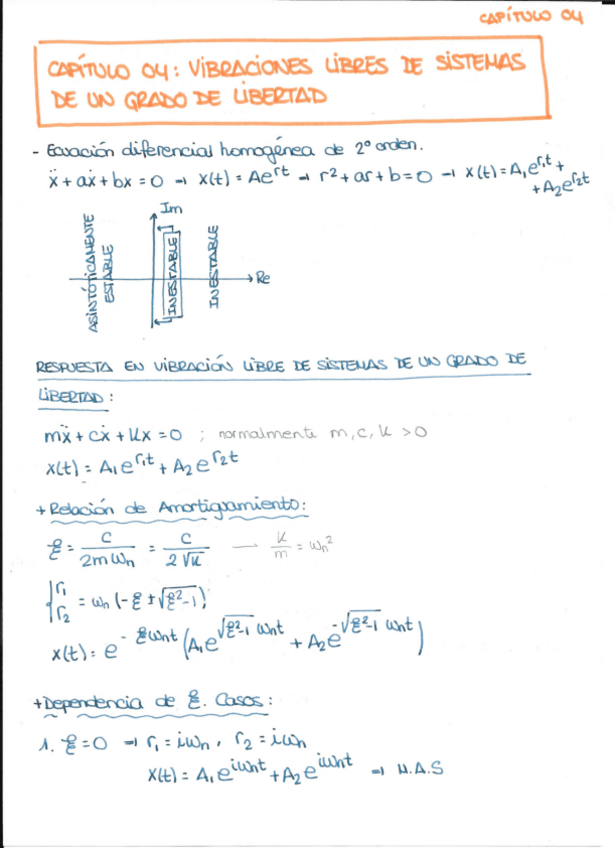 CAPÍTULO 04
CAPÍTULO 04: VIBRACIONES LIBRES DE SISTEMAS
DE UN GRADO DE LIBERTAD
- Ecuación diferencial homogénea de 2º orden.
ẍ + aẋ + bx = 0 → x(t) = Ae^rt → r² + ar + b = 0 → x(t) = A₁e^r₁t +
+ A₂e^r₂t
Im
ASINTÓTICAMENTE
ESTABLE
INESTABLE
INESTABLE
Re
RESPUESTA EN VIBRACIÓN LIBRE DE SISTEMAS DE UN GRADO DE
LIBERTAD:
mẍ + cẋ + kx = 0 ; normalmente m, c, k > 0
x(t) = A₁e^r₁t + A₂e^r₂t
+ Relación de Amortiguamiento:
ξ = c/(2mωn) = c/(2√k) — k/m = ωn²
{r₁ r₂ = ωn (-ξ ± √(ξ²-1))
x(t) = e^(-ξωnt) (A₁e^(√(ξ²-1) ωnt) + A₂e^(-√(ξ²-1) ωnt))
+ Dependencia de ξ. Casos:
1. ξ = 0 → r₁ = iωn, r₂ = iωn
x(t) = A₁e^(iωnt) + A₂e^(iωnt) → M.A.S